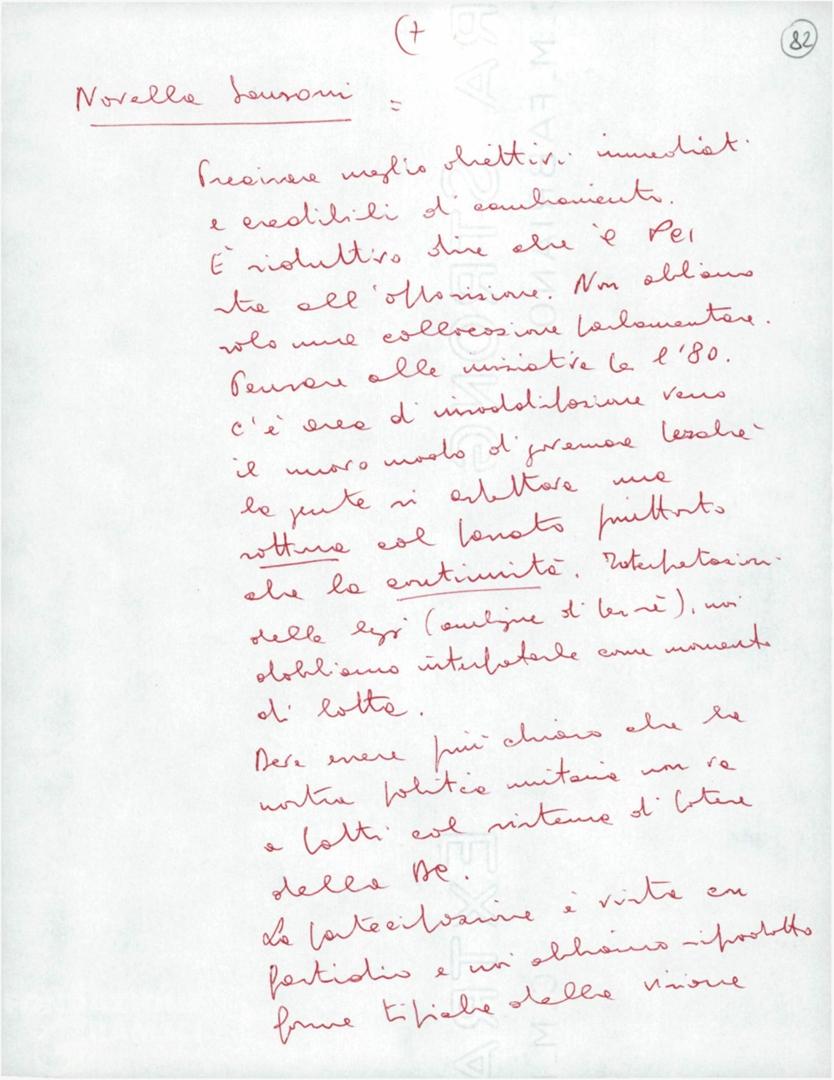 (7
82
Novella Sansoni =
Precisare meglio obiettivi immediati
e credibili di cambiamento.
È riduttivo dire che il PCI
sta all'opposizione. Non abbiamo
solo una collocazione parlamentare.
Pensare alle iniziative per l'80.
C'è area di insoddisfazione verso
il nuovo modo di governare perché
la gente si aspettava una
rottura col passato piuttosto
che la continuità. Interpretazioni
delle leggi (origine di per sé), noi
dobbiamo interpretarle come momento
di lotta.
Deve essere più chiaro che la
nostra politica unitaria non va
a patti col sistema di potere
della DC.
La partecipazione è vista con
fastidio e noi abbiamo riprodotto
forme tipiche della visione
EXTRA STRONG